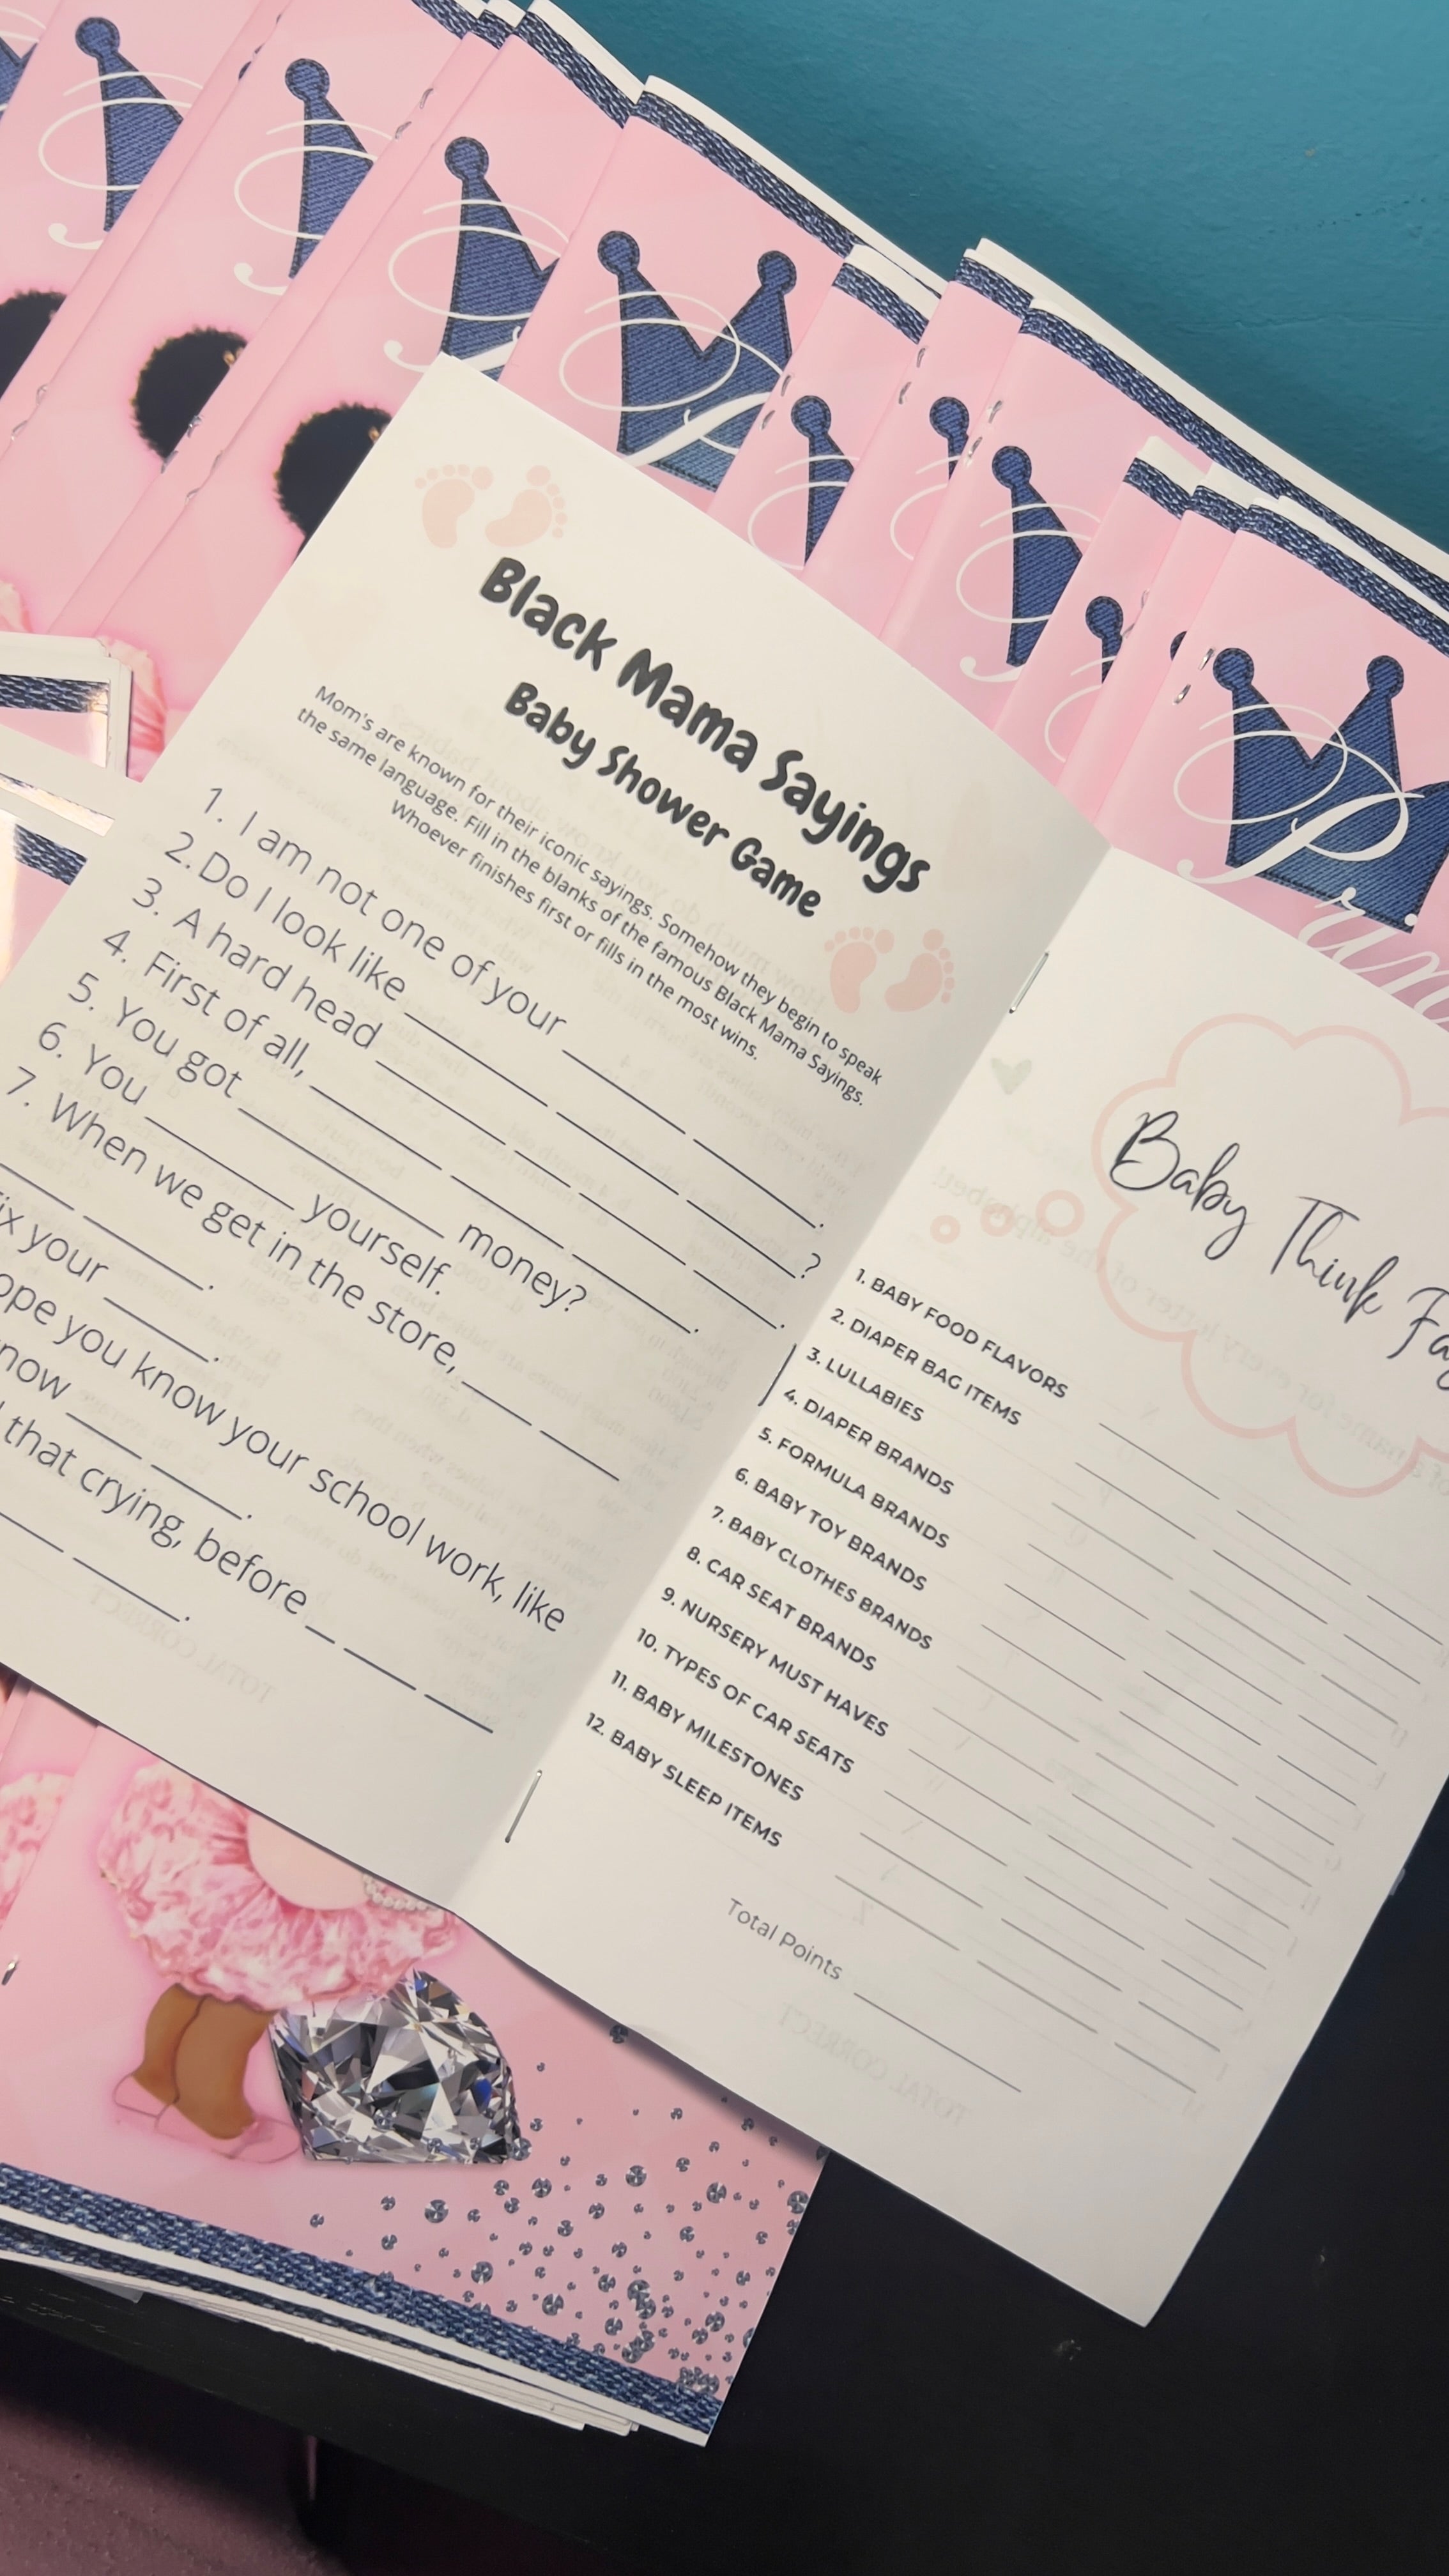 Black Mama Sayings
Baby Shower Game
Mom's are known for their iconic sayings. Somehow they begin to speak
the same language. Fill in the blanks of the famous Black Mama Sayings.
Whoever finishes first or fills in the most wins.
1. I am not one of your ____ ____.
2. Do I look like ____ ____ ____?
3. A hard head ____ ____ ____ ____.
4. First of all, ____ ____ ____ ____.
5. You got ____ money?
6. You ____ yourself.
7. When we get in the store, ____ ____
____ ____.
your ____.
you know your school work, like
____ ____.
that crying, before ____ ____ ____
____ ____.
Baby Think
1. BABY FOOD FLAVORS
2. DIAPER BAG ITEMS
3. LULLABIES
4. DIAPER BRANDS
5. FORMULA BRANDS
6. BABY TOY BRANDS
7. BABY CLOTHES BRANDS
8. CAR SEAT BRANDS
9. NURSERY MUST HAVES
10. TYPES OF CAR SEATS
11. BABY MILESTONES
12. BABY SLEEP ITEMS
Total Points ____